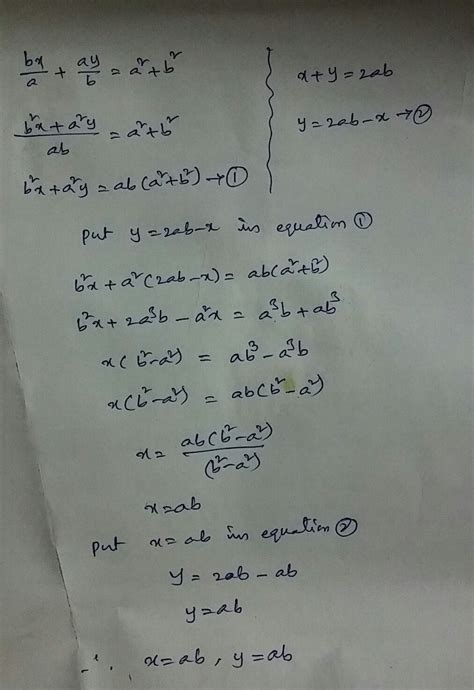 bx/a + ay/b = a² + b²
(b²x + a²y)/ab = a² + b²
b²x + a²y = ab(a² + b²) → ①
x + y = 2ab
y = 2ab - x → ②
put y = 2ab - x in equation ①
b²x + a²(2ab - x) = ab(a² + b²)
b²x + 2a³b - a²x = a³b + ab³
x(b² - a²) = ab³ - a³b
x(b² - a²) = ab(b² - a²)
x = ab(b² - a²)/(b² - a²)
x = ab
put x = ab in equation ②
y = 2ab - ab
y = ab
∴ x = ab, y = ab